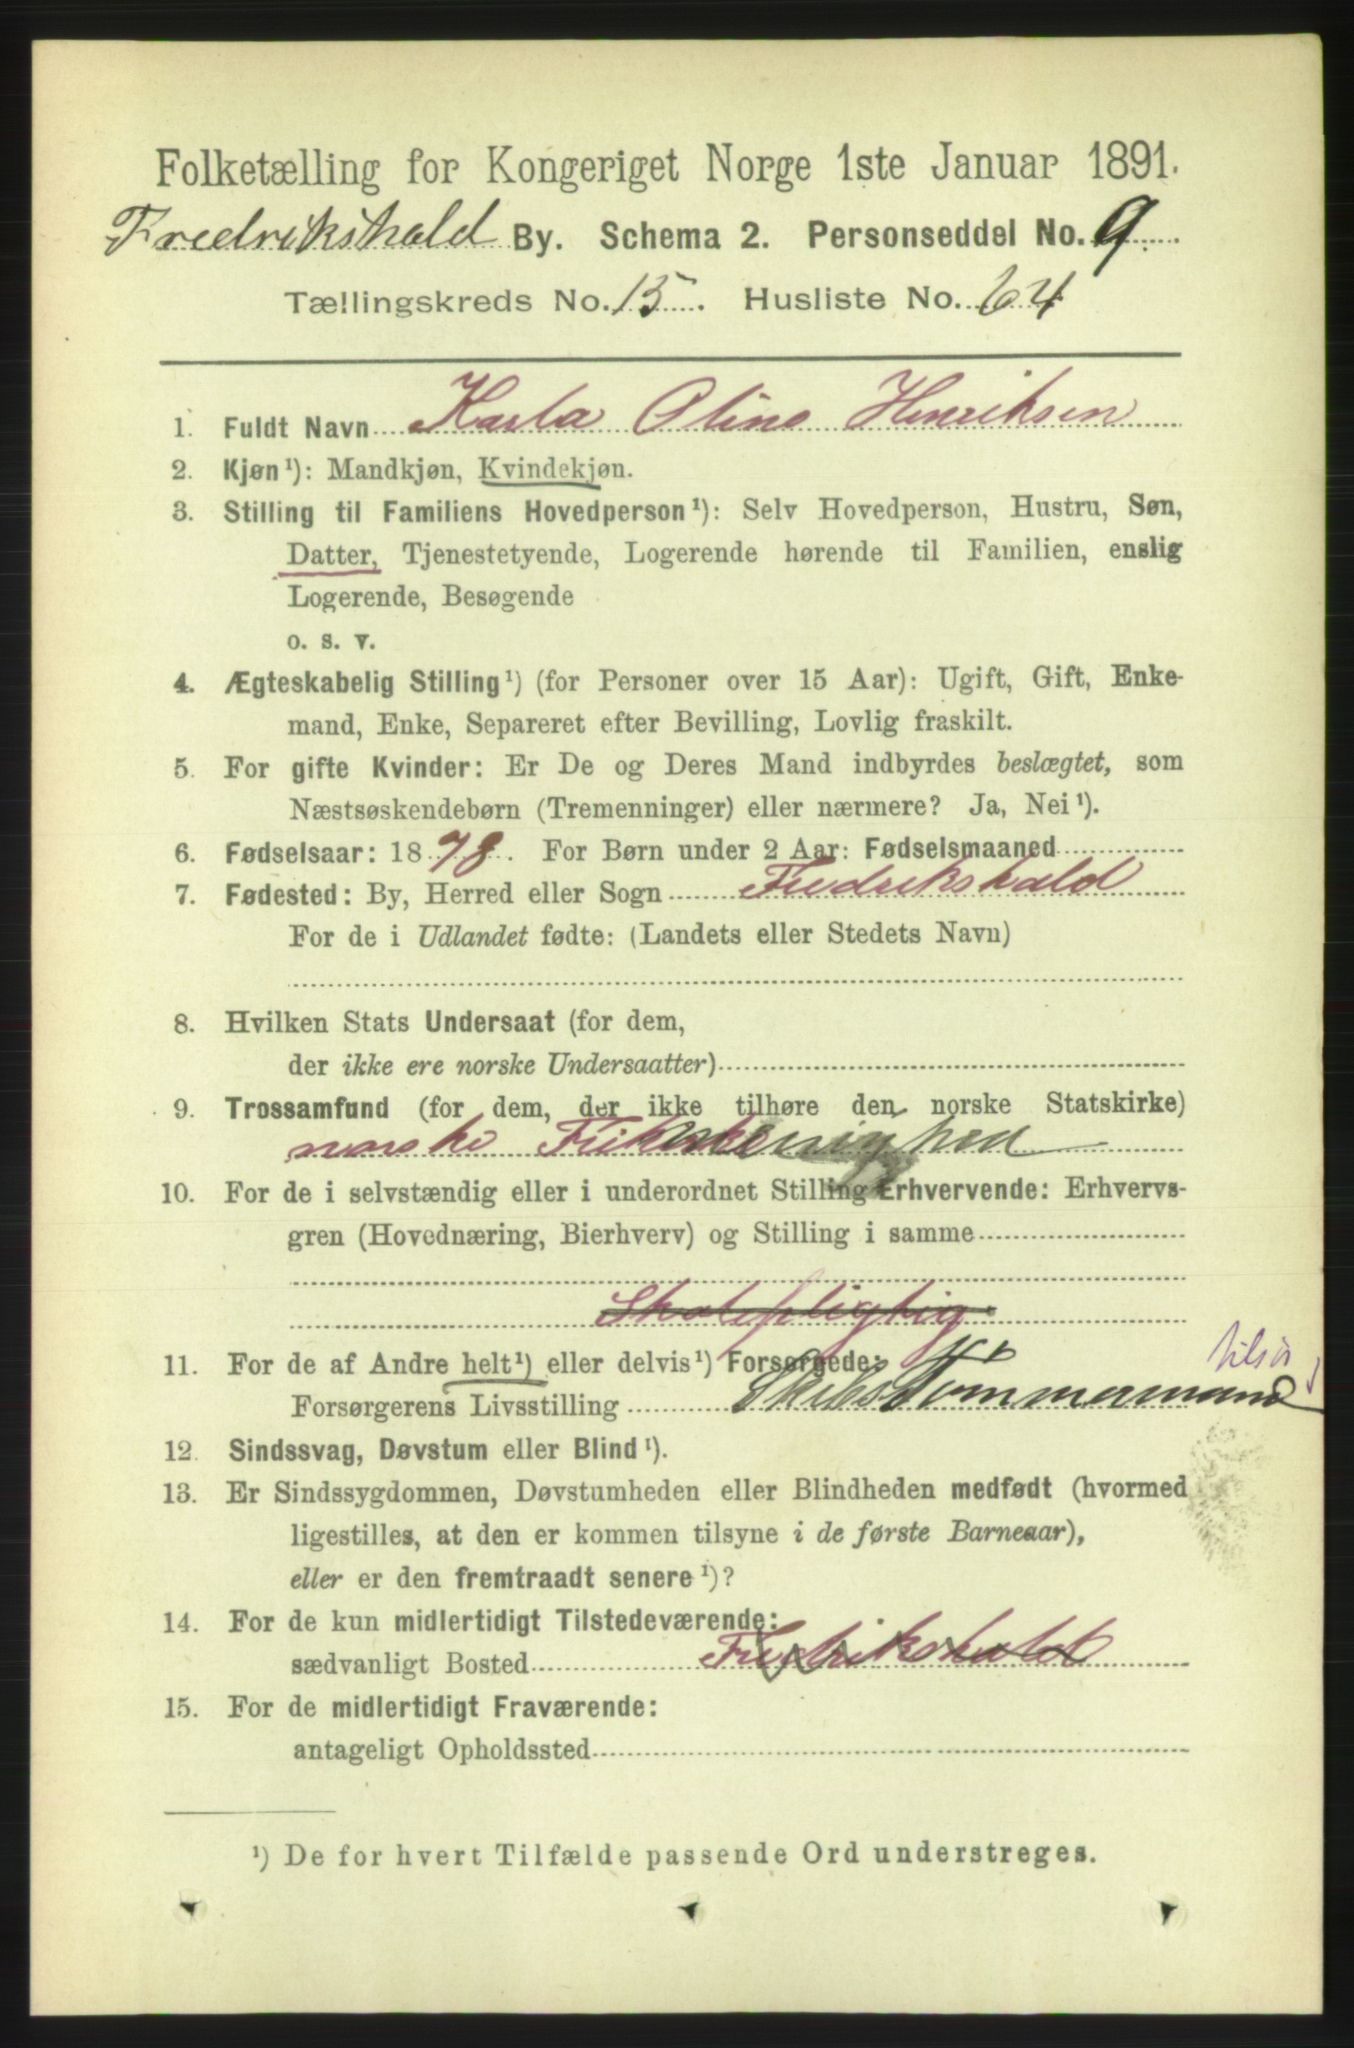 Folketælling for Kongeriget Norge 1ste Januar 1891.
Fredrikshald By. Schema 2. Personseddel No. 9
Tællingskreds No. 15. Husliste No. 64
1. Fuldt Navn Karla Oline Henriksen
2. Kjøn¹): Mandkjøn, Kvindekjøn.
3. Stilling til Familiens Hovedperson¹): Selv Hovedperson, Hustru, Søn,
Datter, Tjenestetyende, Logerende hørende til Familien, enslig
Logerende, Besøgende
o. s. v.
4. Ægteskabelig Stilling¹) (for Personer over 15 Aar): Ugift, Gift, Enke-
mand, Enke, Separeret efter Bevilling, Lovlig fraskilt.
5. For gifte Kvinder: Er De og Deres Mand indbyrdes beslægtet, som
Næstsøskendebørn (Tremenninger) eller nærmere? Ja, Nei¹).
6. Fødselsaar: 1878. For Børn under 2 Aar: Fødselsmaaned
7. Fødested: By, Herred eller Sogn Fredrikshald
For de i Udlandet fødte: (Landets eller Stedets Navn)
8. Hvilken Stats Undersaat (for dem,
der ikke ere norske Undersaatter)
9. Trossamfund (for dem, der ikke tilhøre den norske Statskirke)
norske Frikirke
10. For de i selvstændig eller i underordnet Stilling Erhvervende: Erhvervs-
gren (Hovednæring, Bierhverv) og Stilling i samme
Skolepligtig
11. For de af Andre helt¹) eller delvis¹) Forsørgede:
Forsørgerens Livsstilling Skibstømmermand
12. Sindssvag, Døvstum eller Blind¹).
13. Er Sindssygdommen, Døvstumheden eller Blindheden medfødt (hvormed
ligestilles, at den er kommen tilsyne i de første Barneaar),
eller er den fremtraadt senere¹)?
14. For de kun midlertidigt Tilstedeværende:
sædvanligt Bosted Fredrikshald
15. For de midlertidigt Fraværende:
antageligt Opholdssted
¹) De for hvert Tilfælde passende Ord understreges.